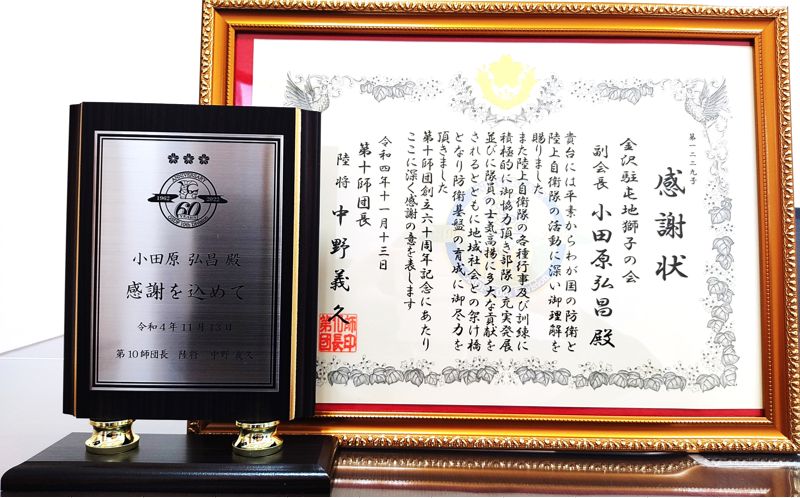 ANNIVERSARY
1962
2022
60
小田原 弘昌 殿
感謝を込めて
令和4年11月13日
第10師団長 陸将 中野 義久
第一二二九号
感謝状
金沢駐屯地獅子の会
副会長 小田原弘昌 殿
貴台には平素からわが国の防衛と
陸上自衛隊の活動に深い御理解を
賜りました
また陸上自衛隊の各種行事及び訓練に
積極的に御協力頂き部隊の充実発展
並びに隊員の士気高揚に多大な貢献を
されるとともに地域社会との架け橋
となり防衛基盤の育成に御尽力を
頂きました
第十師団創立六十周年記念にあたり
ここに深く感謝の意を表します
令和四年十一月十三日
第十師団長
陸将 中野義久
第10師団長印